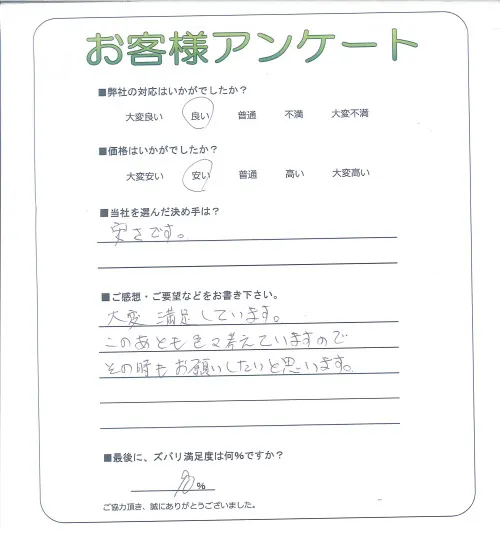 お客様アンケート
■弊社の対応はいかがでしたか?
大変良い 良い 普通 不満 大変不満
■価格はいかがでしたか?
大変安い 安い 普通 高い 大変高い
■当社を選んだ決め手は?
安さです。
■ご感想・ご要望などをお書き下さい。
大変満足しています。
このあとも色々考えていますので
その時もお願いしたいと思います。
■最後に、ズバリ満足度は何%ですか?
%
ご協力頂き、誠にありがとうございました。